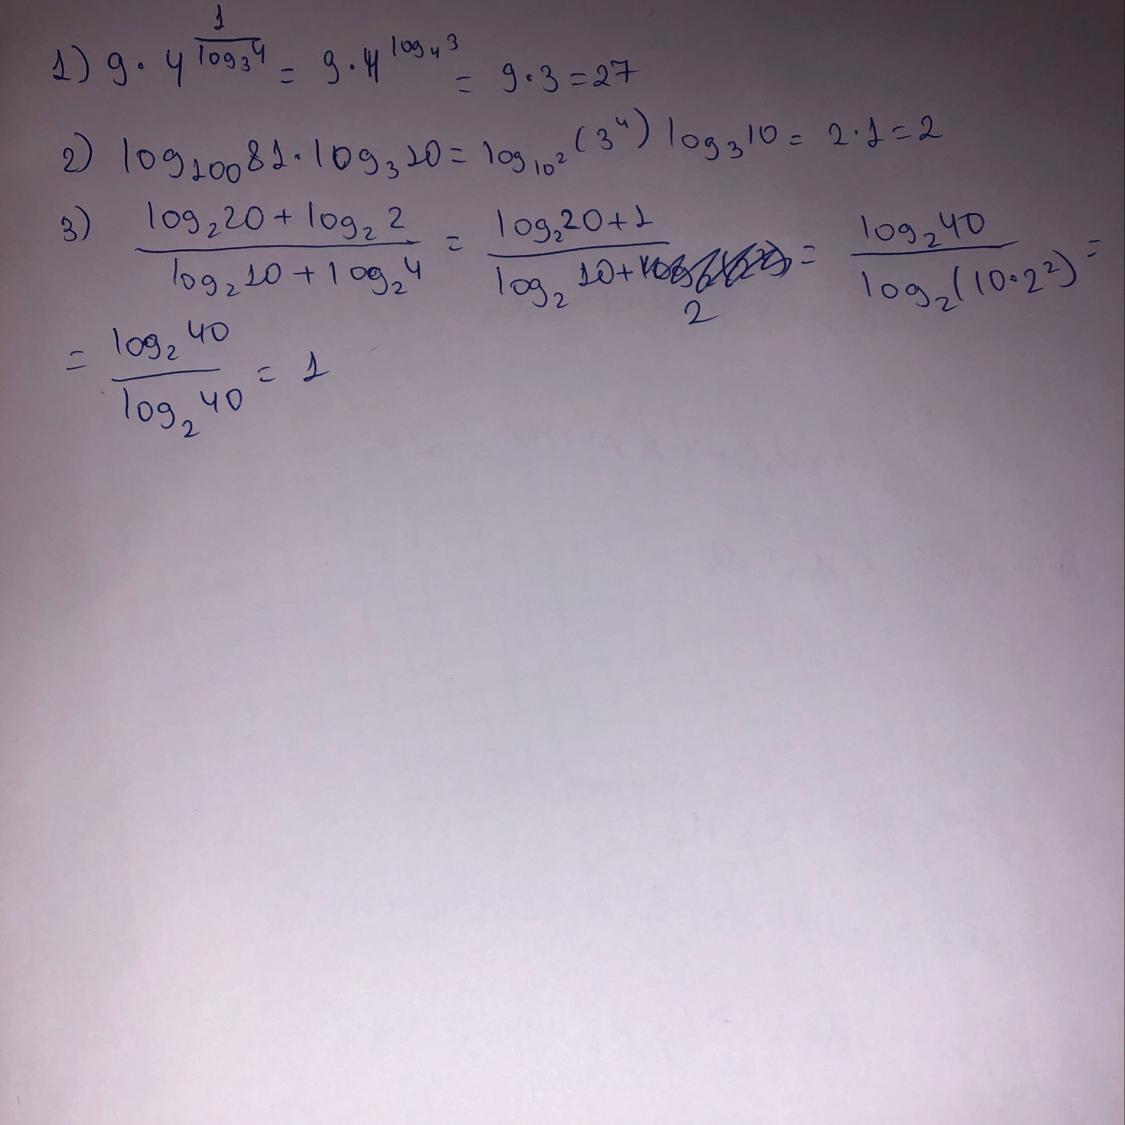 1) 9 · 4^(1/log₃4) = 9 · 4^(log₄3) = 9 · 3 = 27
2) log₁₀₀81 · log₃10 = log₁₀²(3⁴) log₃10 = 2 · 1 = 2
3) (log₂20 + log₂2)/(log₂10 + log₂4) = (log₂20 + 1)/(log₂10 + 2) = log₂40/log₂(10 · 2²) =
= log₂40/log₂40 = 1